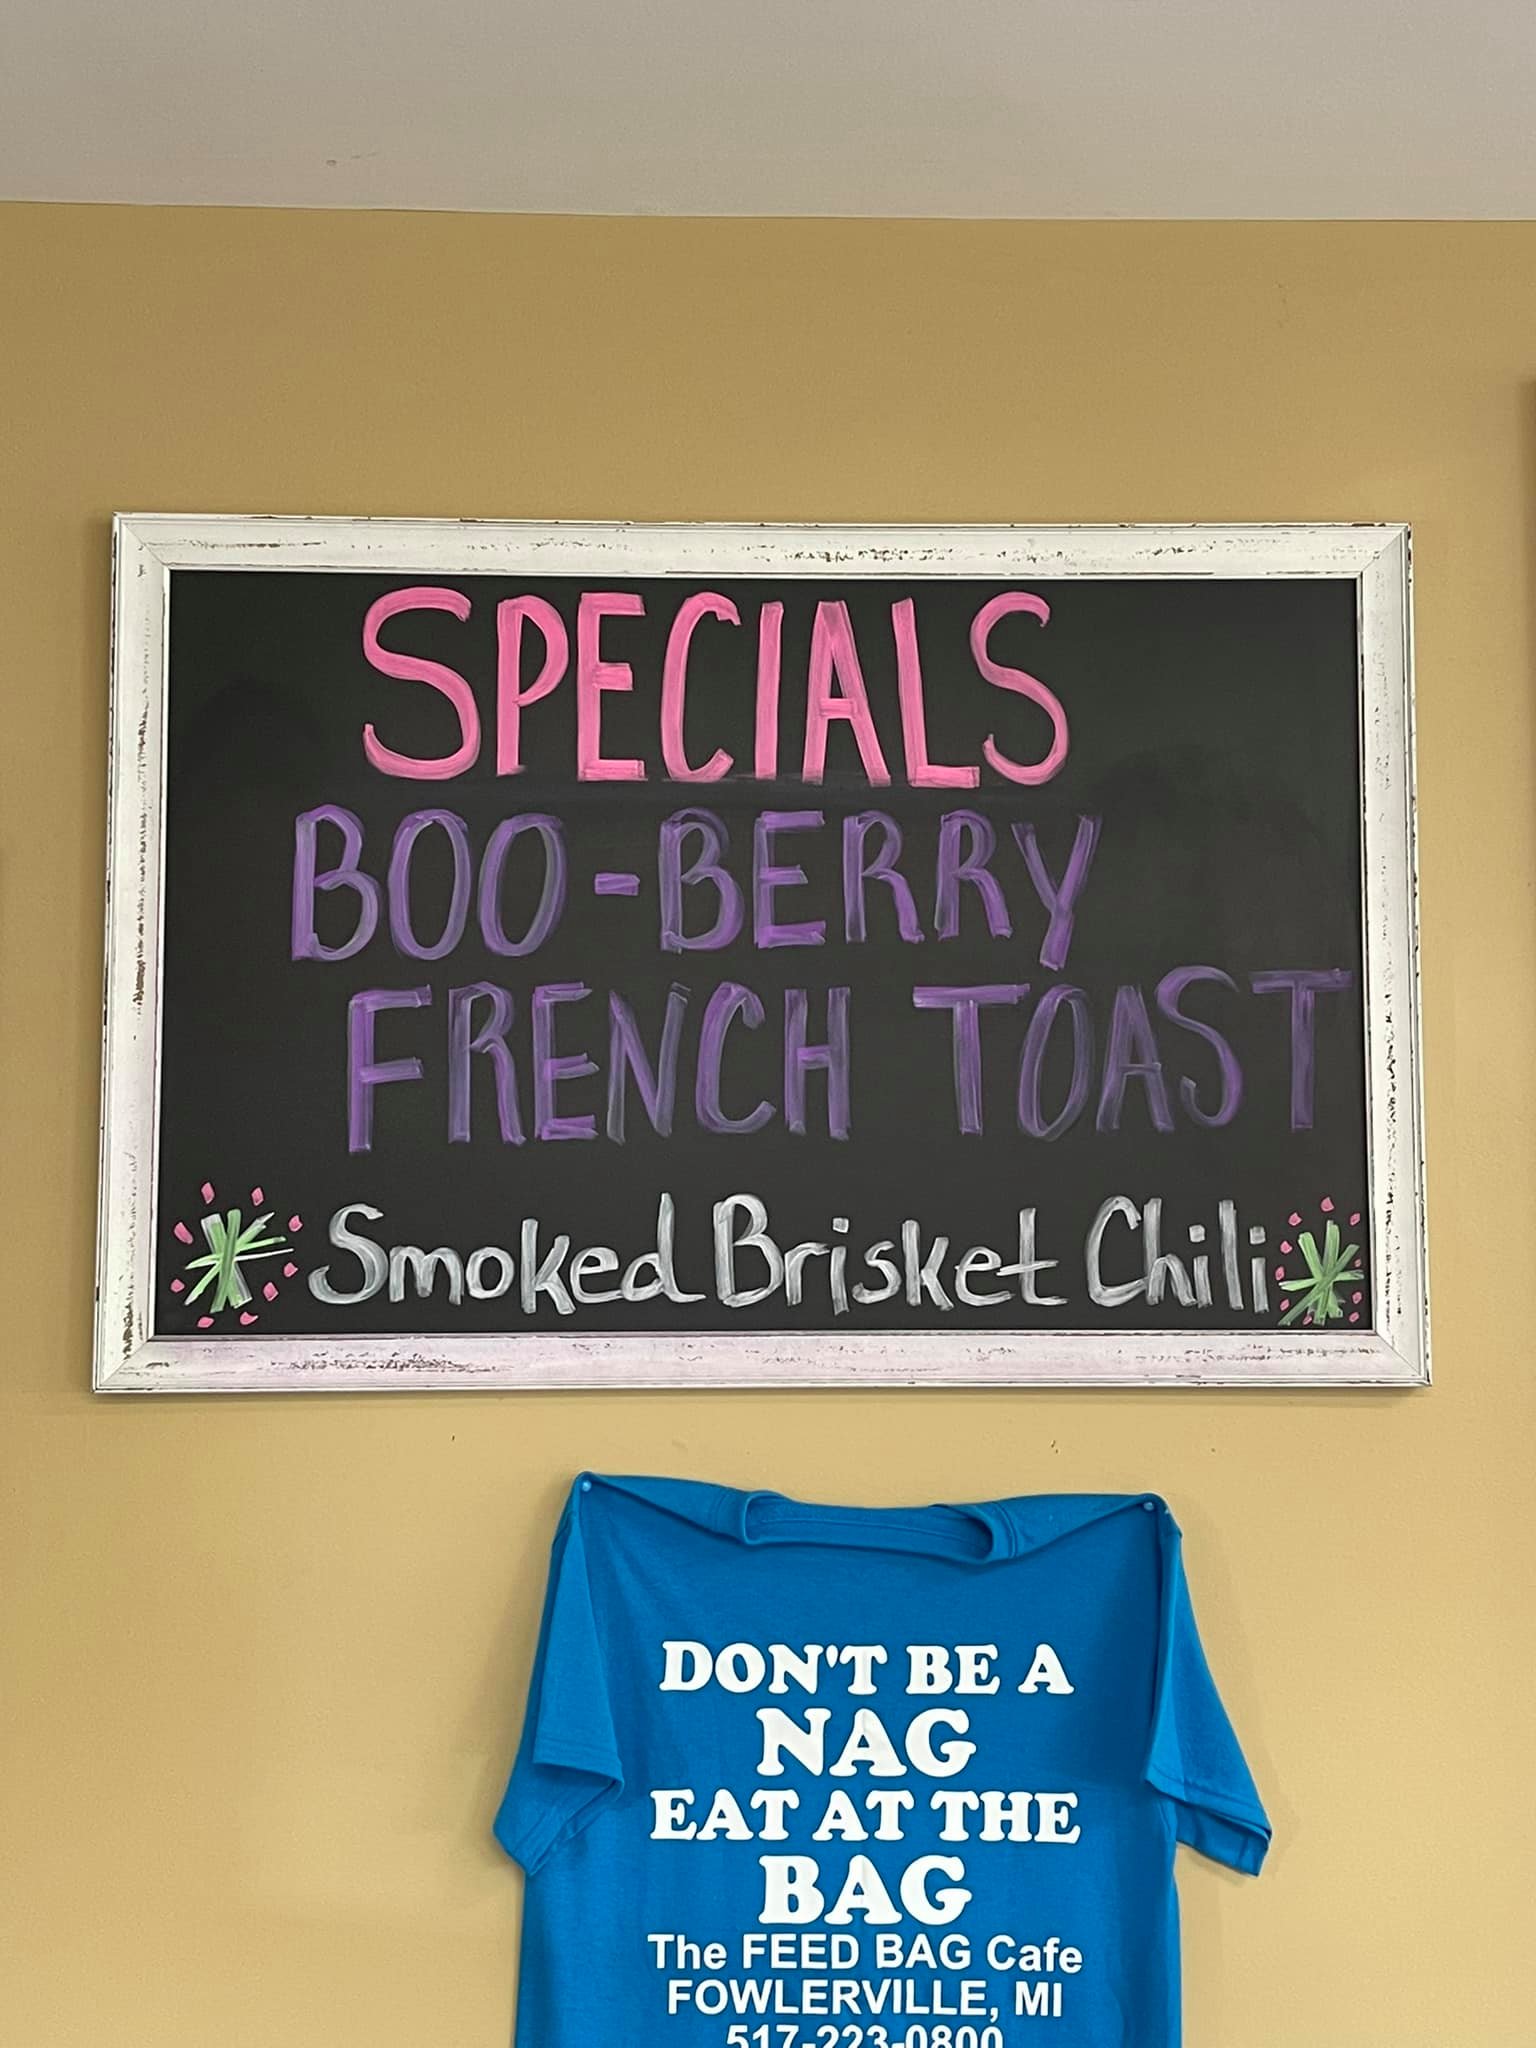 SPECIALS
BOO-BERRY
FRENCH TOAST
Smoked Brisket Chili
DON'T BE A
NAG
EAT AT THE
BAG
The FEED BAG Cafe
FOWLERVILLE, MI
517-223-0800